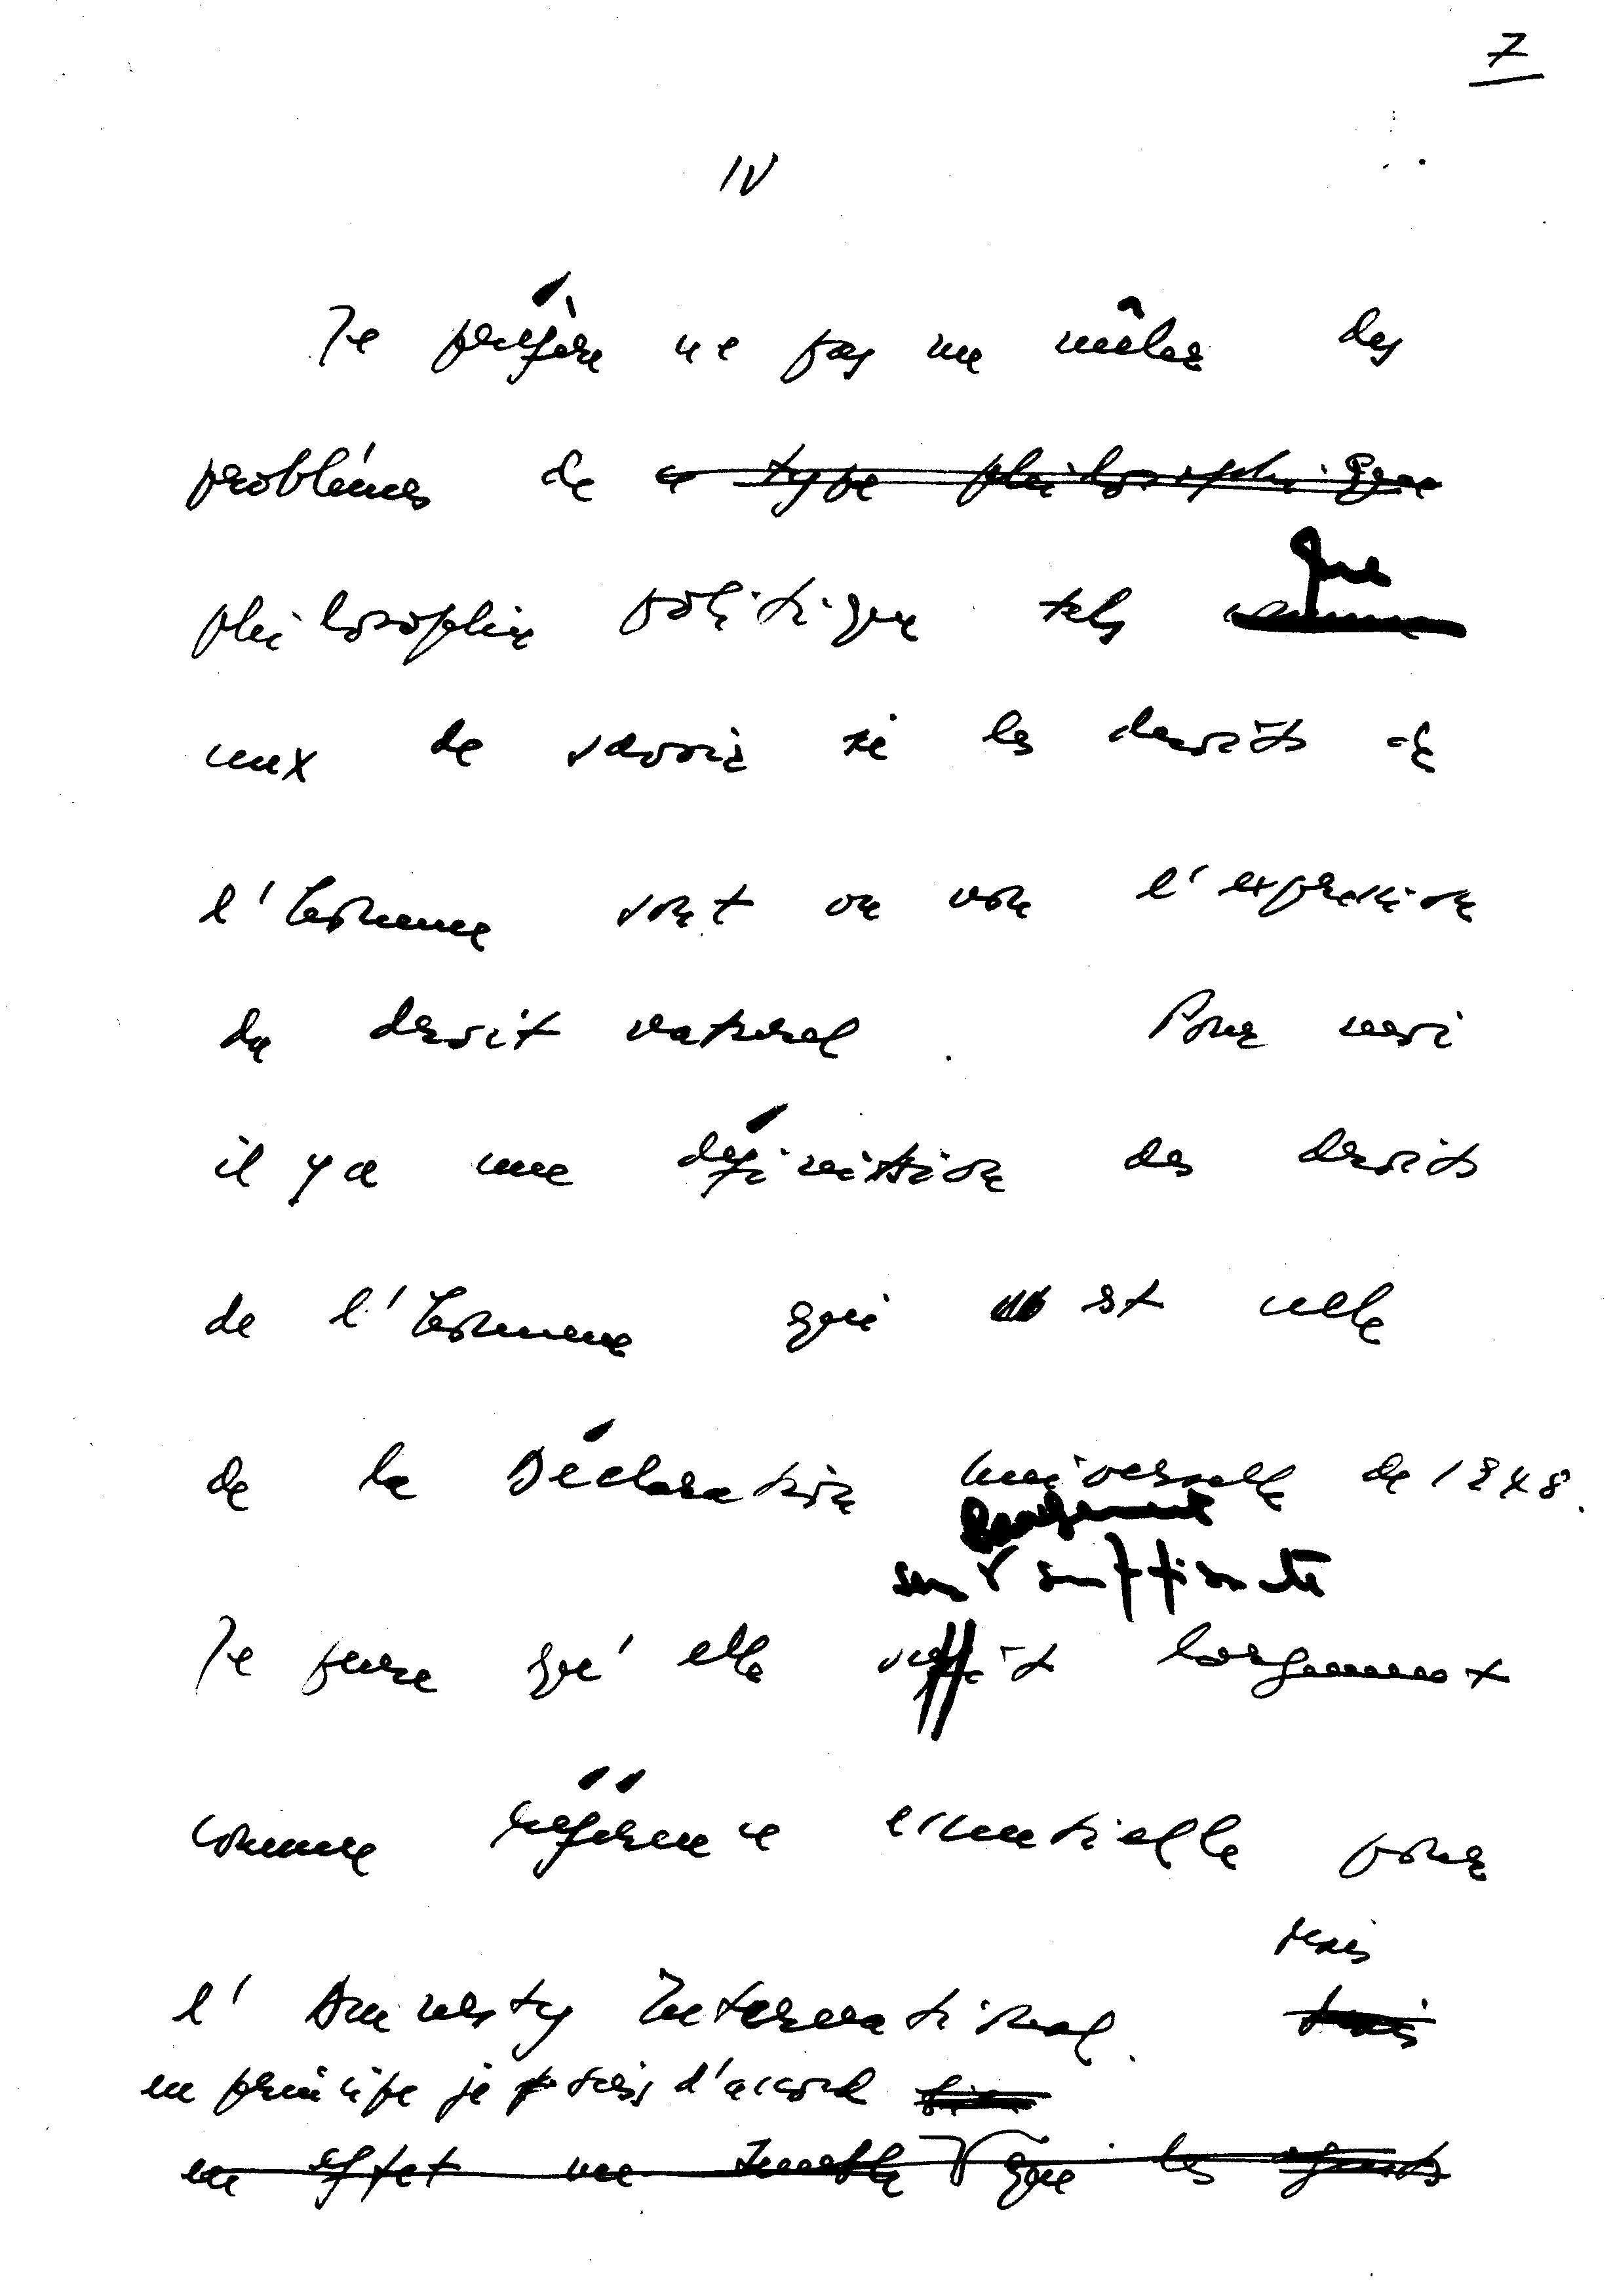 7
IV
Je préfère ne pas me mêler des
problèmes de ce type philosophique
que
philosophie politique tels comme
ceux de savoir si les droits de
l'homme sont ou non l'expression
du droit naturel. Pour moi
il y a une définition des droits
de l'homme qui est celle
de la Déclaration universelle de 1948.
largement
sera suffisante
Je pense qu'elle suffit largement
comme référence essentielle pour
mais
l'Amnesty International. mais
en principe je suis d'accord
en effet me semble que les